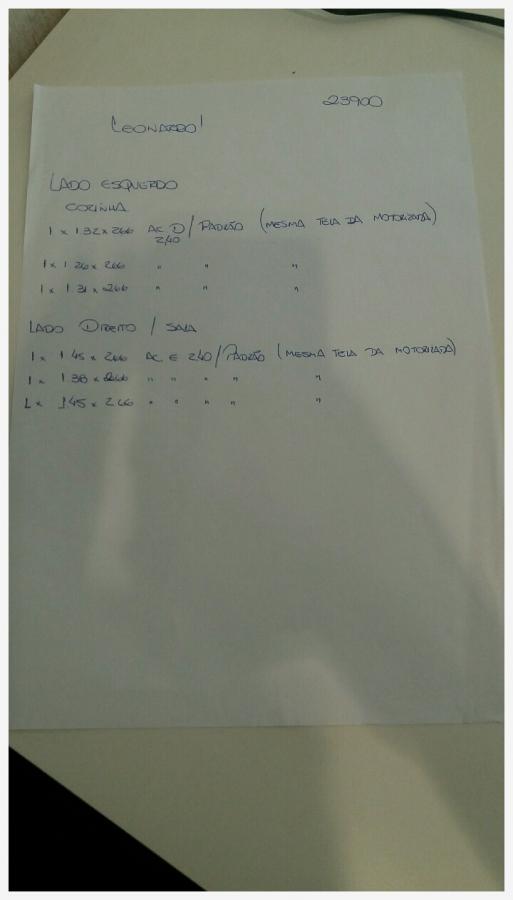 23900
LEONARDO!
LADO ESQUERDO
COZINHA
1 x 1.32 x 266 AC D 2,40 / PADRÃO (MESMA TELA DA MOTORIZADA)
1 x 1.26 x 266 " " "
1 x 1.31 x 266 " " "
LADO DIREITO / SALA
1 x 1.45 x 266 AC E 240 / PADRÃO (MESMA TELA DA MOTORIZADA)
1 x 1.38 x 266 " " " " "
1 x 1.45 x 266 " " " " "